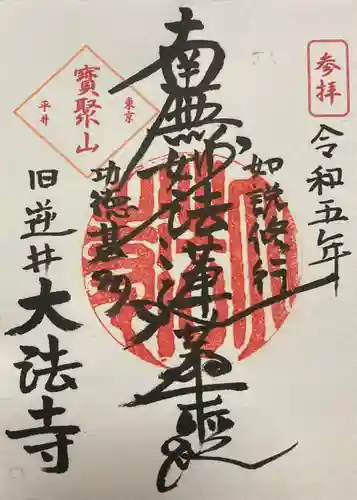 参拝
令和五年
如説修行
南無妙法蓮華経
功徳甚多
東京
寶聚山
平井
旧逆井
大法寺